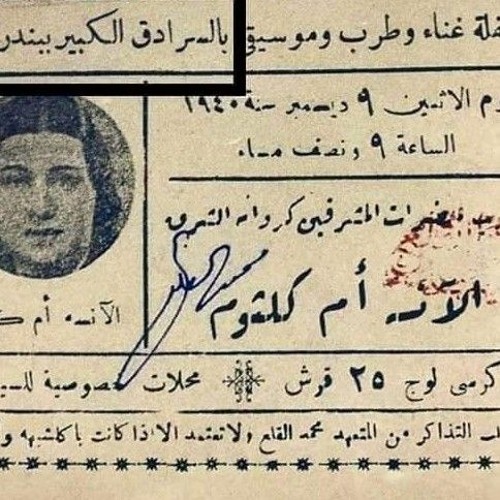 حفلة غناء وطرب وموسيقى بالسرادق الكبير ببندر
يوم الاثنين ٩ ديسمبر سنة ١٩٤٥
الساعة ٩ ونصف مساء
حضرات المتشرفين كروانة الشرق
الآنسة أم كلثوم
الآنسة أم ك
كرسى لوج ٢٥ قرش محلات خصوصية للسي
التذاكر من المتعهد محمد القلع ولا تعتمد الا اذا كانت باكلشيه و